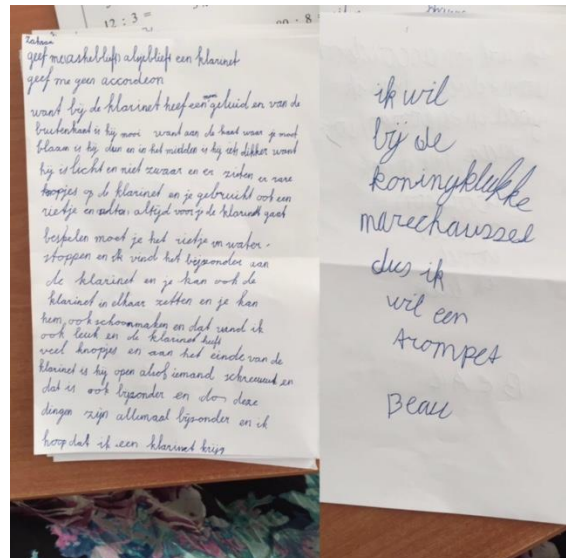 12 : 3 =
: 8
Zahraa
geef me alsjeblieft een klarinet
geef me geen accordeon
want bij de klarinet heef een geluid en van de
buitenkant is hij mooi want aan de kant waar je moet
blaasn is hij dun en in het midden is hij iets dikker want
hij is licht en niet zwaar en er ziten er rare
knopjes op de klarinet en je gebruikt ook een
rietje en altijd voor je de klarinet gaat
bespelen moet je het rietje in water-
stoppen en ik vind het bijzonder aan
de klarinet en je kan ook de
klarinet in elkaar zetten en je kan
hem ook schoonmaken en dat vind ik
ook leuk en de klarinet heeft
veel knopjes en aan het einde van de
klarinet is hij open alsof iemand schreeuwt en
dat is ook bijzonder en door deze
dingen zijn allemaal bijzonder en ik
hoop dat ik een klarinet krijg
ik wil
bij de
koninyklukke
marechaussee
dus ik
wil een
trompet
Beau